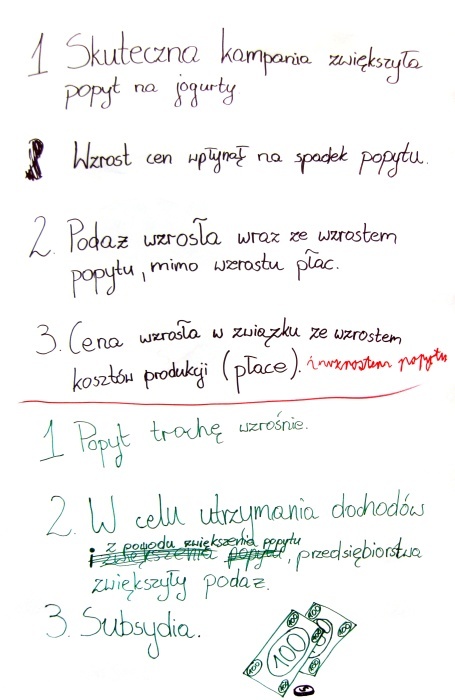 1 Skuteczna kampania zwiększyła
popyt na jogurty
Wzrost cen wpłynął na spadek popytu.
2. Podaż wzrosła wraz ze wzrostem
popytu, mimo wzrostu płac.
3. Cena wzrosła w związku ze wzrostem
kosztów produkcji (płace). i wzrostem popytu
1 Popyt trochę wzrośnie.
2. W celu utrzymania dochodów
z powodu zwiększenia popytu
i zwiększenia popytu, przedsiębiorstwa
zwiększyły podaż.
3. Subsydia.
100 100 100 100
100
100 100